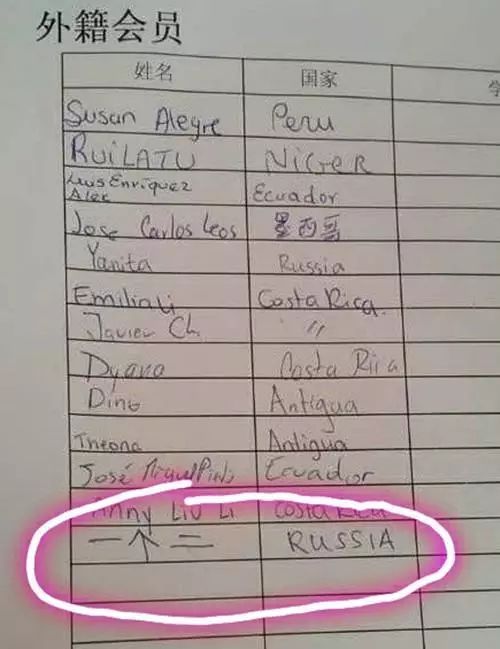 外籍会员
姓名 国家 学
Susan Alegre Peru
RUiLATU NiGeR
Luis Enriquez Ecuador
Alex
Jose Carlos Leos 墨西哥
Yanita Russia
Emilia Li Costa Rica.
Javier Ch. "
Dyana Costa Rica
Dino Antigua
Theona Antigua
José Miguel Ecuador
Anny Liu Li Costa Rica
一个二 RUSSIA